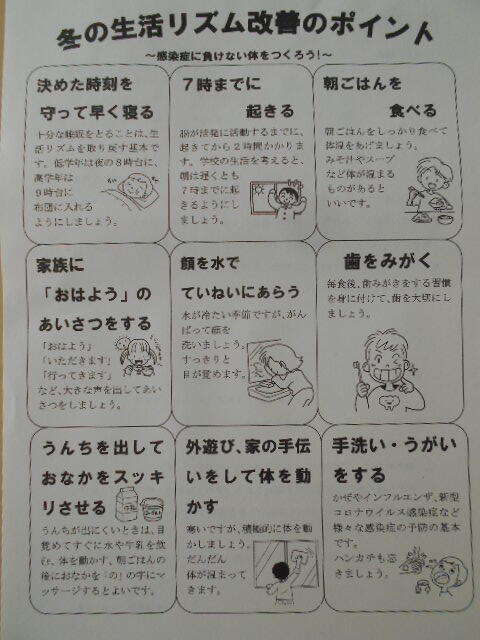 冬の生活リズム改善のポイント
～感染症に負けない体をつくろう！～
決めた時刻を
守って早く寝る
十分な睡眠をとることは、生
活リズムを取り戻す基本で
す。低学年は夜の８時台に、
高学年は
９時台に
布団に入れる
ようにしましょう。
７時までに
起きる
脳が活発に活動するまでに、
起きてから２時間かかりま
す。学校の生活を考えると、
朝は遅くとも
７時までに起
きるようにし
ましょう。
朝ごはんを
食べる
朝ごはんをしっかり食べて
体温をあげましょう。
みそ汁やスープ
など体が温まる
ものがあると
いいです。
家族に
「おはよう」の
あいさつをする
「おはよう」
「いただきます」
「行ってきます」
など、大きな声を出してあい
さつをしましょう。
顔を水で
ていねいにあらう
水が冷たい季節ですが、がん
ばって顔を
洗いましょう。
すっきりと
目が覚めます。
歯をみがく
毎食後、歯みがきをする習慣
を身に付けて、歯を大切にし
ましょう。
うんちを出して
おなかをスッキ
リさせる
うんちが出にくいときは、目
覚めてすぐに水や牛乳を飲
む、体を動かす、朝ごはんの
後におなかを「の」の字にマ
ッサージするとよいです。
外遊び、家の手伝
いをして体を動
かす
寒いですが、積極的に体を動
かしましょう。
だんだん
体が温まって
きます。
手洗い・うがい
をする
かぜやインフルエンザ、新型
コロナウイルス感染症など
様々な感染症の予防の基本
です。
ハンカチも忘
きましょう。